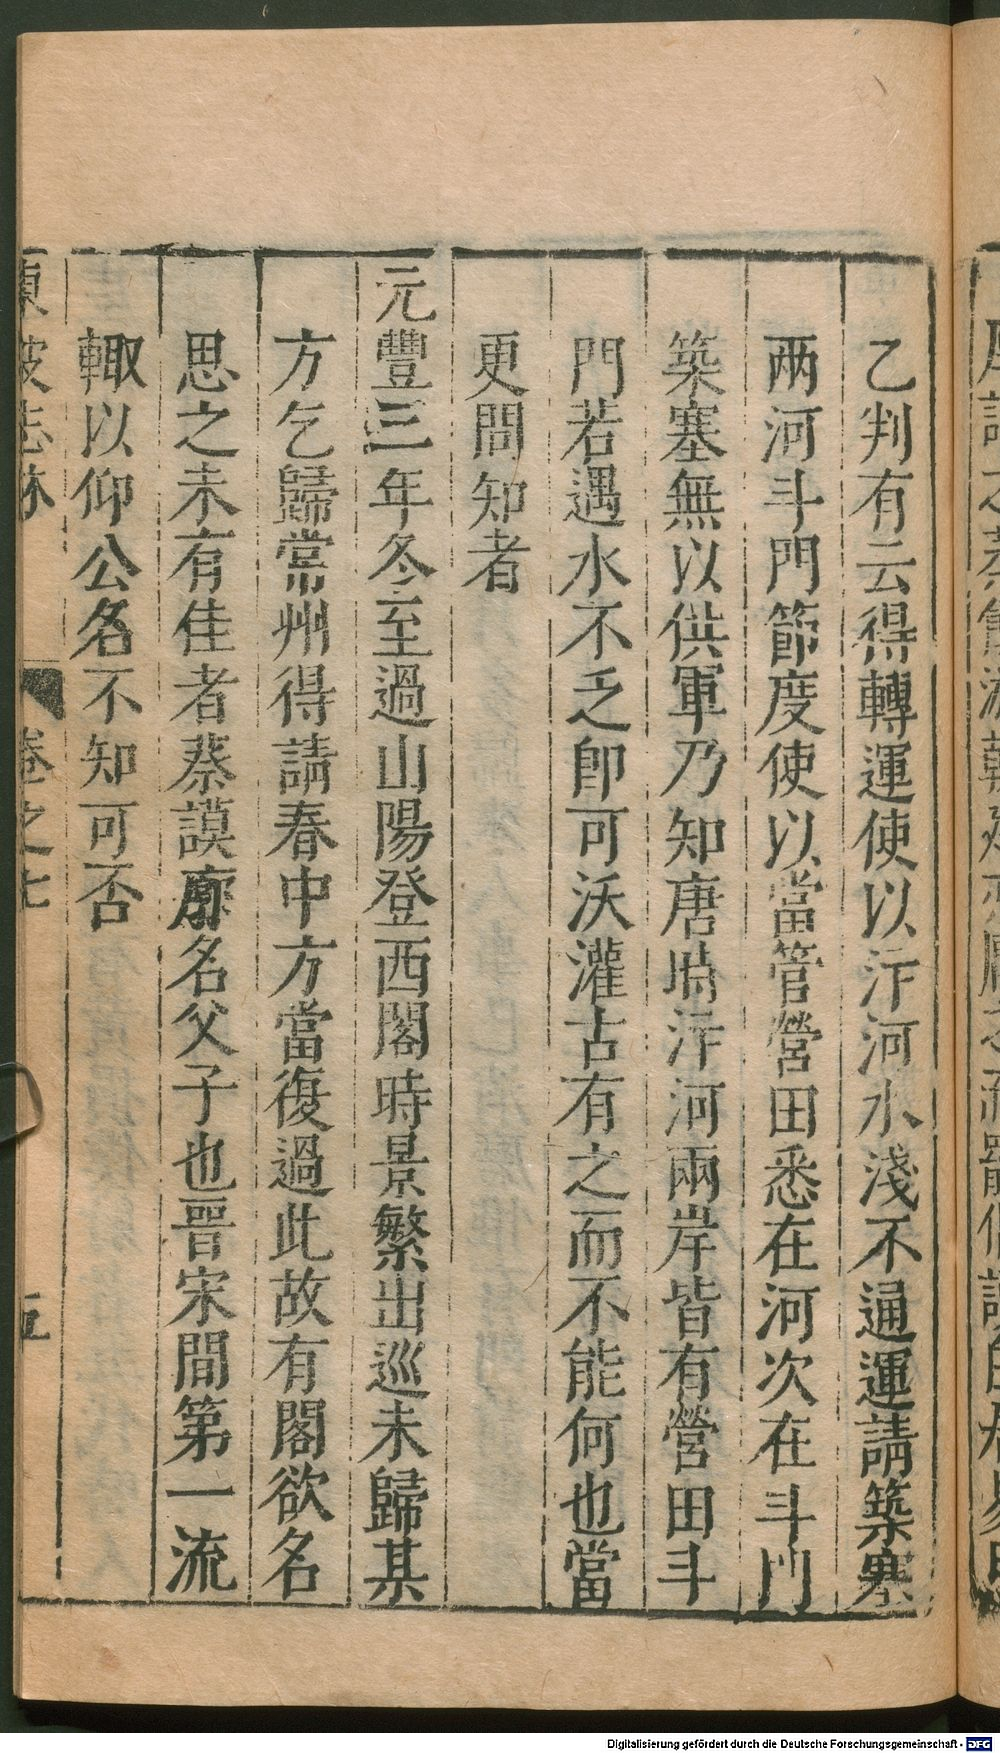 乙判有云得轉運使以汴河水淺不通運請築塞
两河斗門節度使以當管營田悉在河次在斗門
築塞無以供軍乃知唐時汴河兩岸皆有營田斗
門若遇水不乏卽可沃灌古有之而不能何也當
更問知者
元豐三年冬至過山陽登西閣時景繁出巡未歸某
方乞歸常州得請春中方當復過此故有閣欲名
思之未有佳者蔡謨廓名父子也晋宋間第一流
輙以仰公名不知可否
東坡志林 卷之七 五
Digitalisierung gefördert durch die Deutsche Forschungsgemeinschaft - DFG